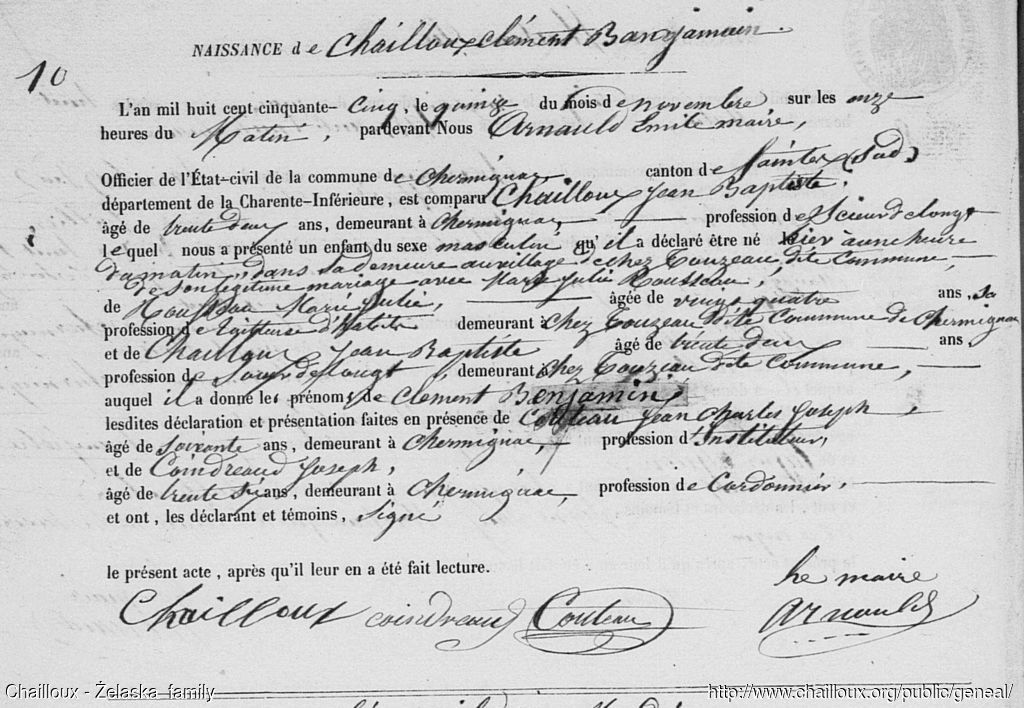 NAISSANCE de Chailloux Clément Banjamain
10
L'an mil huit cent cinquante- Cinq, le quinze du mois de novembre sur les onze
heures du Matin, pardevant Nous Arnauld Emile maire,
Officier de l'État-civil de la commune de Chermignac canton de Saintes (Sud)
département de la Charente-Inférieure, est comparu Chailloux Jean Baptiste,
âgé de trente deux ans, demeurant à Chermignac, profession de Scieur de longt
lequel nous a présenté un enfant du sexe masculin, qu'il a déclaré être né hier à une heure
du matin, dans sa demeure au village de chez Touzeau dite Commune,
de son légitime mariage avec Marie Julie Rousseau,
de Rousseau Marie Julie, âgée de vingt quatre ans, sa
profession de demeurant à chez Touzeau dite Commune de Chermignac
et de Chailloux Jean Baptiste âgé de trente deux ans,
profession de Scieur de longt, demeurant à chez Touzeau dite Commune,
auquel il a donné les prénoms de Clément Benjamin,
lesdites déclaration et présentation faites en présence de Couteau Jean Charles Joseph,
âgé de Soixante ans, demeurant à Chermignac, profession d'Instituteur,
et de Coindreaud Joseph,
âgé de trente six ans, demeurant à Chermignac, profession de Cordonnier,
et ont, les déclarant et témoins, Signé
le présent acte, après qu'il leur en a été fait lecture.
Le maire
Chailloux Coindreaud Couteau Arnauld
Chailloux - Żelaska family http://www.chailloux.org/public/geneal/